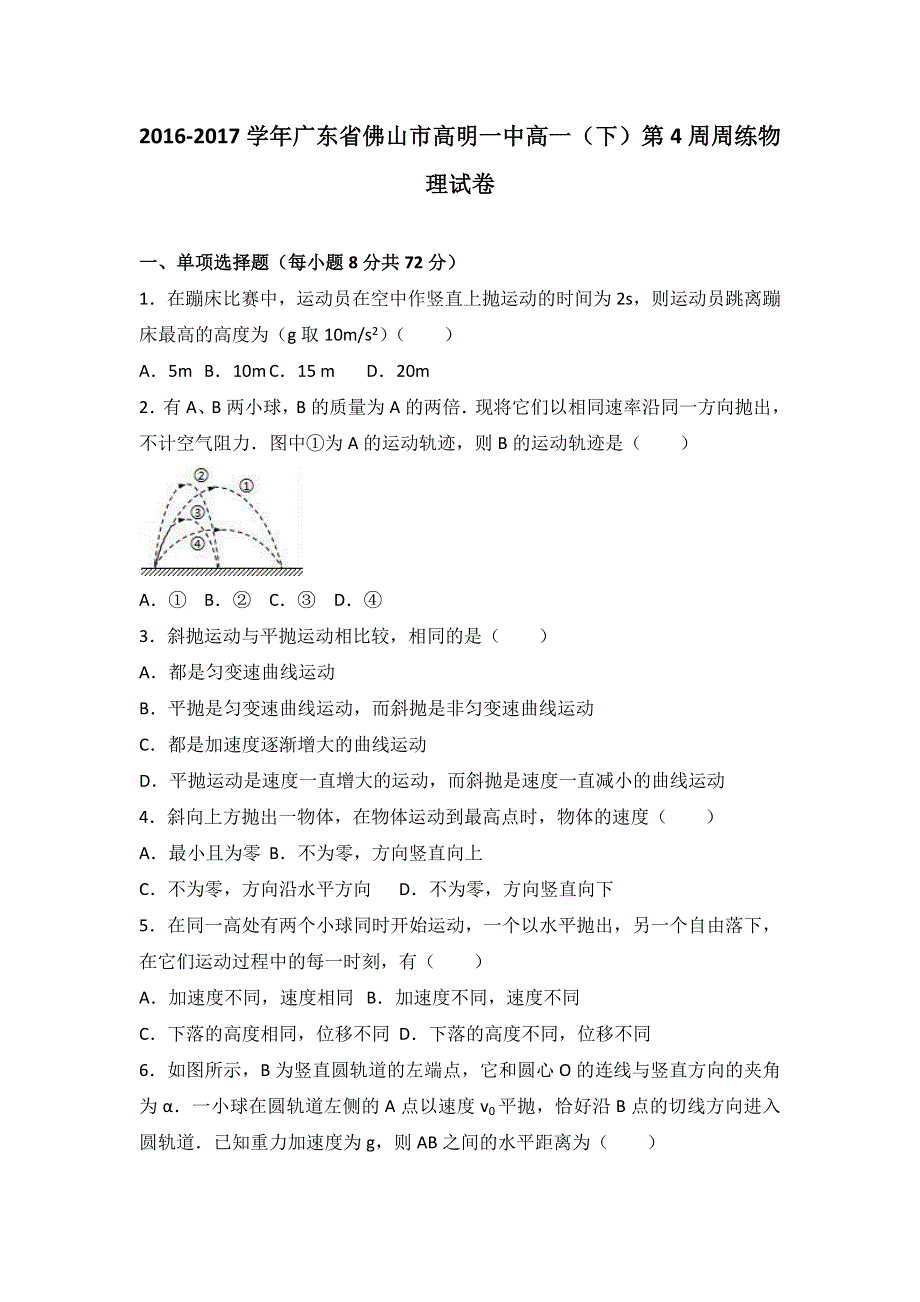 2016-2017 学年广东省佛山市高明一中高一（下）第 4 周周练物
理试卷
一、单项选择题（每小题 8 分共 72 分）
1．在蹦床比赛中，运动员在空中作竖直上抛运动的时间为 2s，则运动员跳离蹦
床最高的高度为（g 取 10m/s²）（　　）
A．5m B．10m C．15 m D．20m
2．有 A、B 两小球，B 的质量为 A 的两倍．现将它们以相同速率沿同一方向抛出，
不计空气阻力．图中①为 A 的运动轨迹，则 B 的运动轨迹是（　　）
②
①
③
④
A．① B．② C．③ D．④
3．斜抛运动与平抛运动相比较，相同的是（　　）
A．都是匀变速曲线运动
B．平抛是匀变速曲线运动，而斜抛是非匀变速曲线运动
C．都是加速度逐渐增大的曲线运动
D．平抛运动是速度一直增大的运动，而斜抛是速度一直减小的曲线运动
4．斜向上方抛出一物体，在物体运动到最高点时，物体的速度（　　）
A．最小且为零 B．不为零，方向竖直向上
C．不为零，方向沿水平方向 D．不为零，方向竖直向下
5．在同一高处有两个小球同时开始运动，一个以水平抛出，另一个自由落下，
在它们运动过程中的每一时刻，有（　　）
A．加速度不同，速度相同 B．加速度不同，速度不同
C．下落的高度相同，位移不同 D．下落的高度不同，位移不同
6．如图所示，B 为竖直圆轨道的左端点，它和圆心 O 的连线与竖直方向的夹角
为 α．一小球在圆轨道左侧的 A 点以速度 v₀ 平抛，恰好沿 B 点的切线方向进入
圆轨道．已知重力加速度为 g，则 AB 之间的水平距离为（　　）